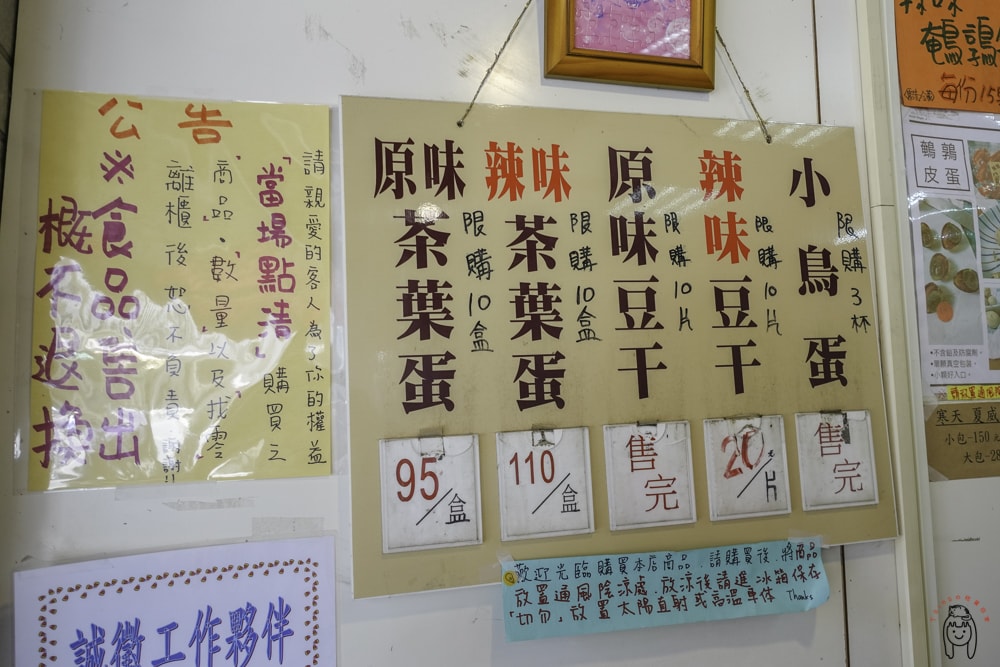 公告
請親愛的客人為了你的權益
「當場點清」購買之
商品、數量以及找零
離櫃後恕不負責
※食品售出
概不退換
原味茶葉蛋
限購10盒
95/盒
辣味茶葉蛋
限購10盒
110/盒
原味豆干
限購10片
售完
辣味豆干
限購10片
20/片
小鳥蛋
限購3杯
售完
歡迎光臨購買本店商品、請購買後將商品
放置通風陰涼處、放涼後請進冰箱保存
「切勿」放置太陽直射或高溫車体 Thanks
誠徵工作夥伴
辣味
鵪鶉
每份15
鵪鶉
皮蛋
•不含鉛及防腐劑。
小包-150
大包-28